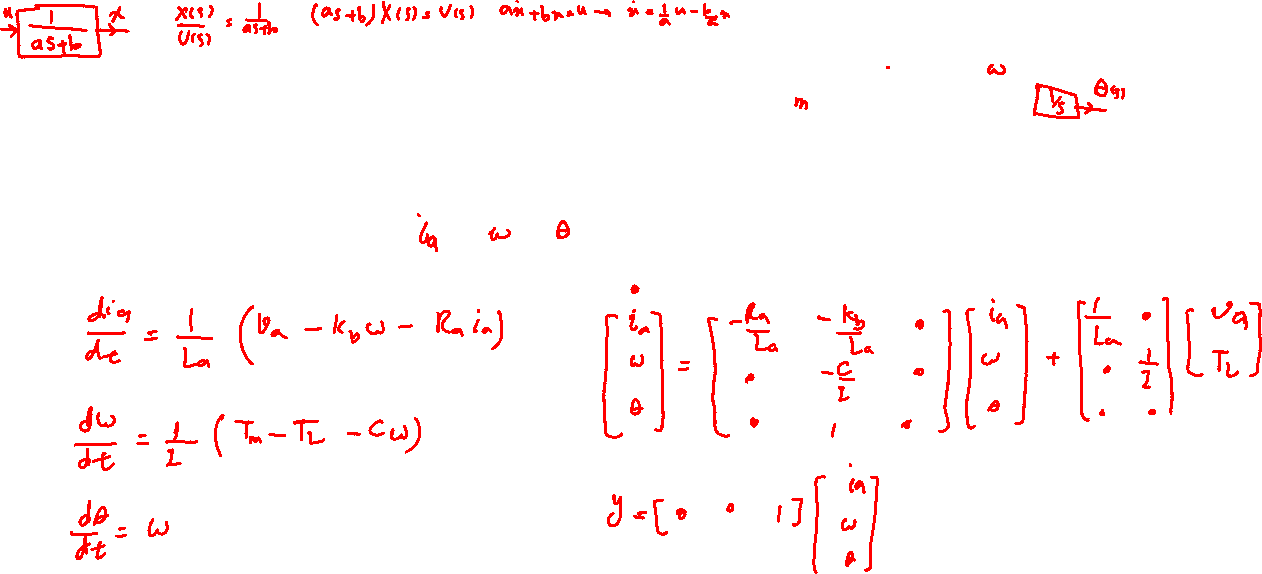 u 1/(as+b) x X(s)/U(s) = 1/(as+b) (as+b) X(s) = U(s) aẋ + bx = u → ẋ = 1/a u − b/a x
ω
m 1/s θ(s)
i_a ω θ
di_a/dt = 1/L_a (v_a − k_b ω − R_a i_a)
dω/dt = 1/I (T_m − T_L − Cω)
dθ/dt = ω
•
[i_a ω θ] = [−R_a/L_a −k_b/L_a • ; • −C/I • ; • 1 •] [i_a ω θ] + [1/L_a • ; • 1/I ; • •] [v_a T_L]
y = [• • 1] [i_a ω θ]